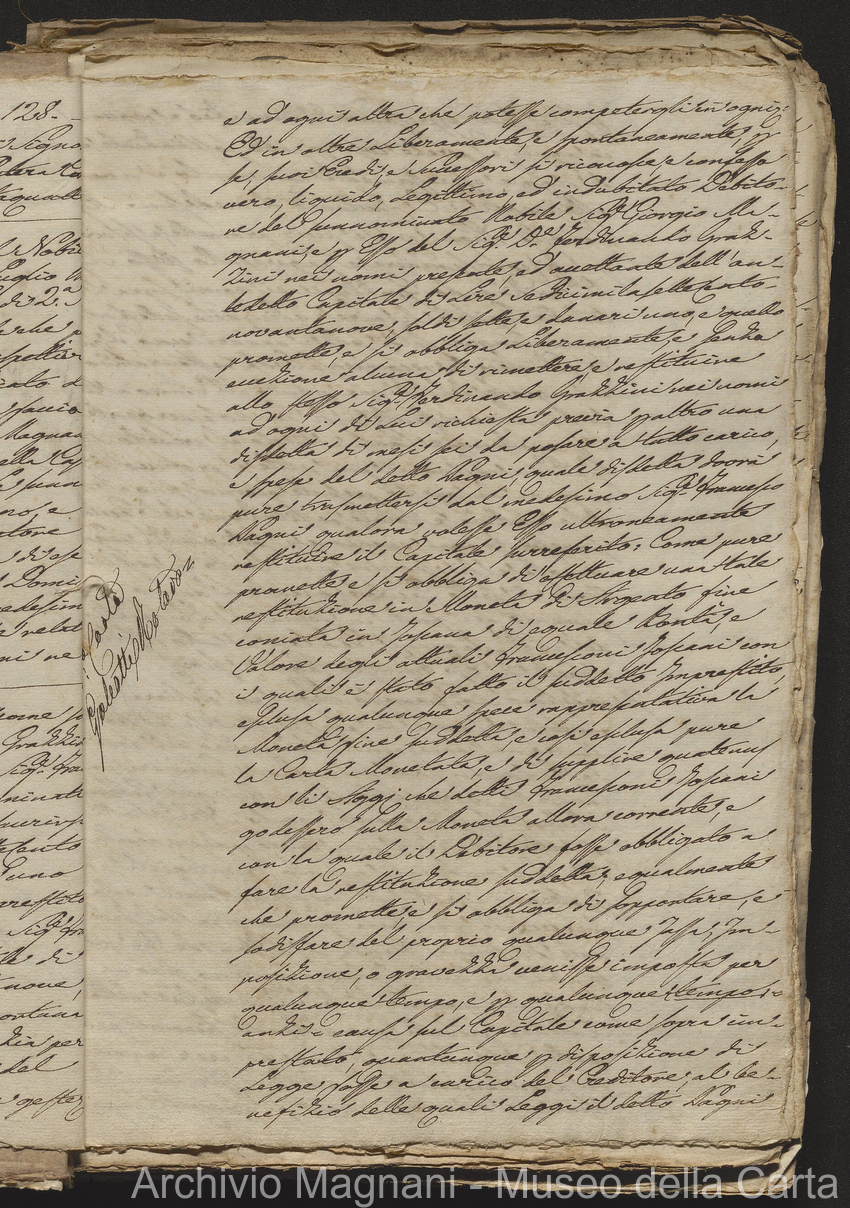 128.
e ad ogni altra che potesse competergli in ogni=
Ed in oltre Liberamente, e spontaneamente, p
se, suoi Eredi, e Successori si riconosce, e confessa
vero, liquido, Legittimo, ed indubitato Debito-
re del prenominato Nobile Sigr Giorgio Ma-
gnani, e p Esso del Sigr Dr Ferdinando Grazi-
zini nei nomi presente, ed accettante dell'an-
tedetto Capitale di Lire Sedicimila settecento
novantanove, soldi sette, e danari uno, e quello
promette, e si obbliga Liberamente, e senza
eccezione alcuna di rimettere, e restituire
allo stesso Sigr Ferdinando Grazzini nei nomi
ad ogni di Lui richiesta previa p altro una
disdetta di mesi sei da passare a tutto carico,
e spese del detto Pagni, quale disdetta dovrà
pure trasmettersi dal medesimo Sigr Francesco
Pagni qualora volesse Esso ultroneamente
restituire il Capitale surreferito; Come pure
promette e si obbliga di effettuare una tale
restituzione in Moneta di Argento fine
coniata in Toscana di eguale Bontà, e
Valore degli attuali Francesconi Toscani con
i quali è stato fatto il suddetto Imprestito
esclusa qualunque specie rappresentativa la
Moneta fine suddetta e così esclusa pure
la Carta Monetata, e di supplire quatenus
con li Aggi che detti Francesconi Toscani
godessero sulla Moneta allora corrente, e
con la quale il Debitore fosse obbligato a
fare la restituzione suddetta; egualmente
che promette e si obbliga di sopportare, e
sodisfare del proprio qualunque Tassa, Im-
posizione, o gravezza venisse imposta per
qualunque tempo, e p qualunque tempo,=
anzi= causa sul Capitale come sopra im-
prestato, quantunque p disposizione di
Legge fosse a carico del Creditore, al be-
nefizio delle quali Leggi il detto Pagni
Galeotti Notaro
Archivio Magnani - Museo della Carta